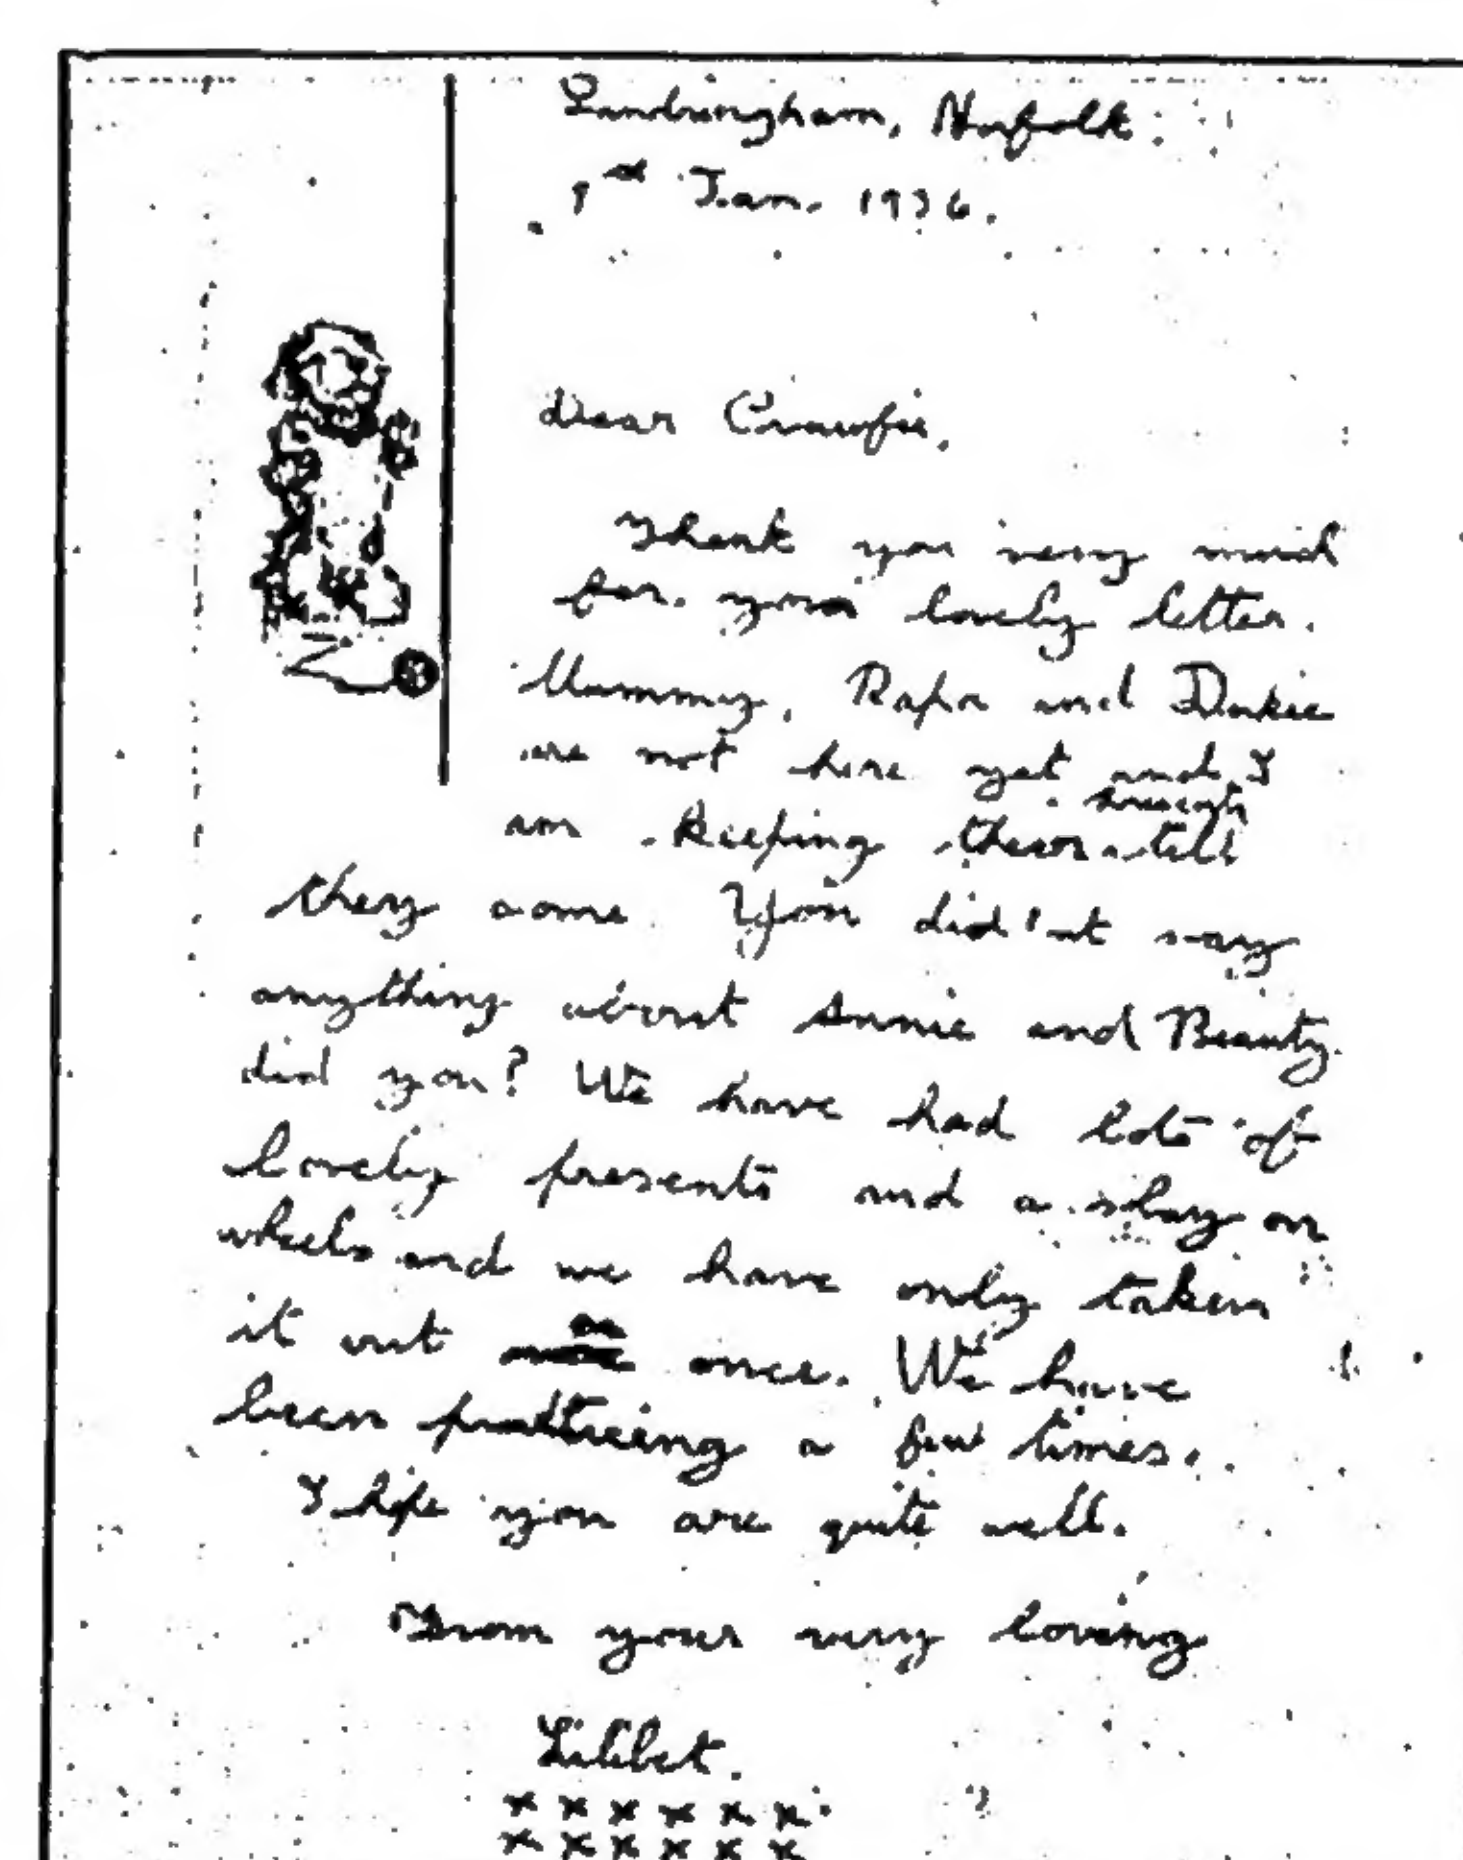 Sandringham, Norfolk.
1st Jan. 1936.
Dear Crawfie,
Thank you very much
for your lovely letter.
Mummy, Papa and Dukie
are not here yet and I
am keeping them
till
they come. You did'nt say
anything about Annie and Beauty
did you? We have had lots of
lovely presents and a slay on
wheels and we have only taken
it out once. We have
been practicing a few times.
I hope you are quite well.
From your very loving
Lilibet.
x x x x x x
x x x x x x